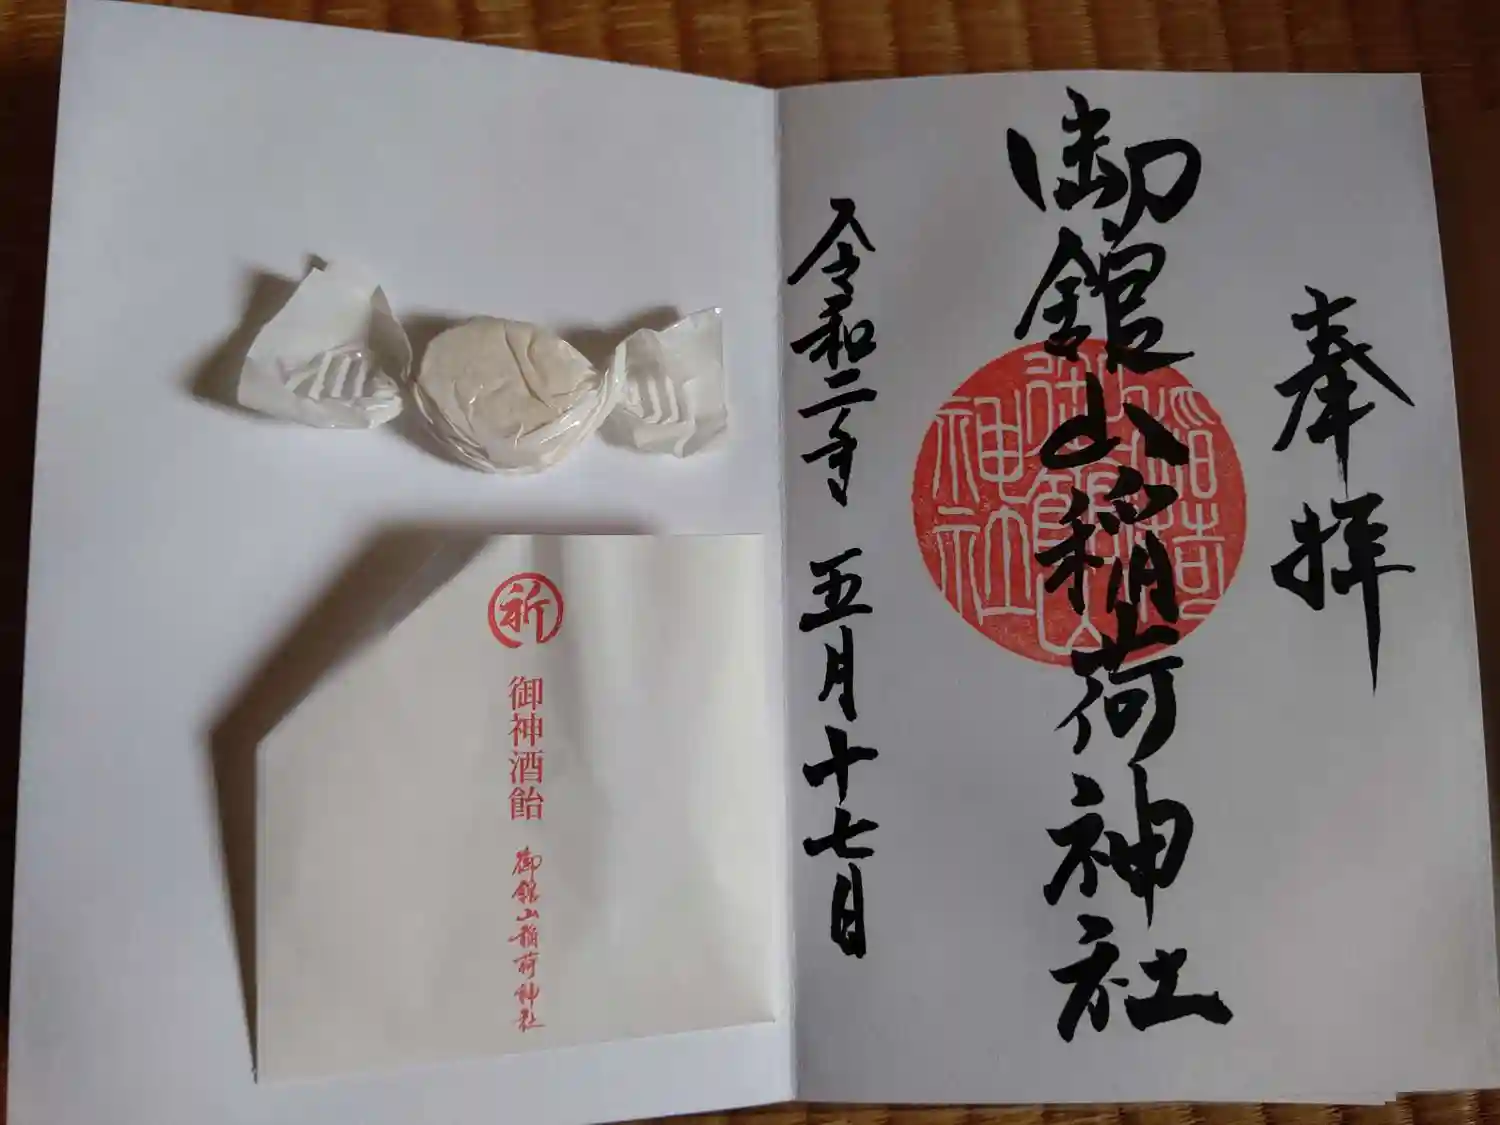 奉拝
御館山稲荷神社
稲荷
御館山
神社
令和二年 五月十七日
祈
御神酒飴
御館山稲荷神社